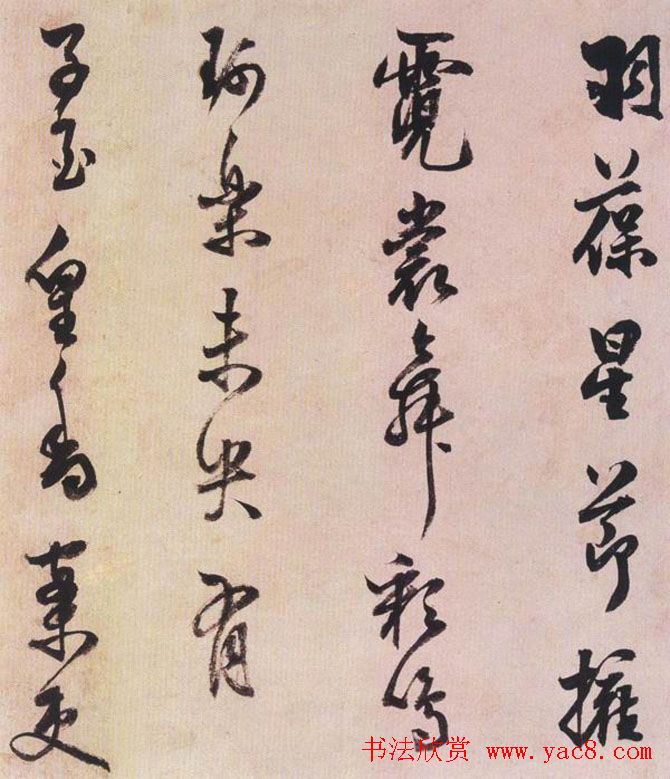 羽葆星節擁
霓裳舞彩鳴
珂樂未央有
子玉皇香案吏
书法欣赏 www.yac8.com